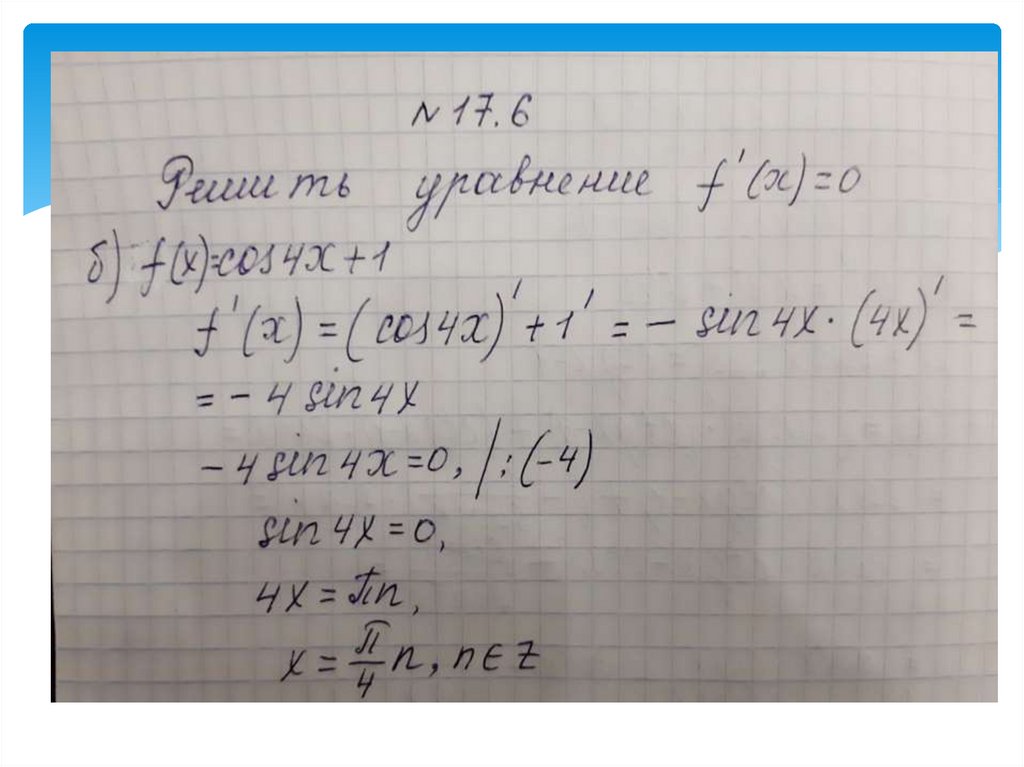 N 17.6
Решить уравнение f'(x)=0
б) f(x)=cos4x+1
f'(x)=(cos4x)'+1' = - sin4x·(4x)' =
= - 4 sin4x
- 4 sin4x=0, |:(-4)
sin4x=0,
4x=πn,
x= π/4 n, n∈Z